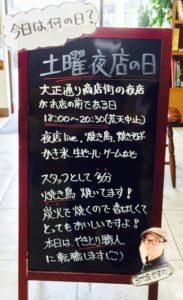 今日は何の日？
土曜夜店の日
大正通り商店街の夜店
がお店の前である日
18:00～20:30(荒天中止)
夜店live、焼き鳥、焼きそば
かき氷、生ビール、ゲームなど
スタッフとして多分
焼き鳥 焼いてます！
炭火で焼くので香ばしくて
とってもおいしいですよ！
本日は、やきとり職人
に転職します(^^)